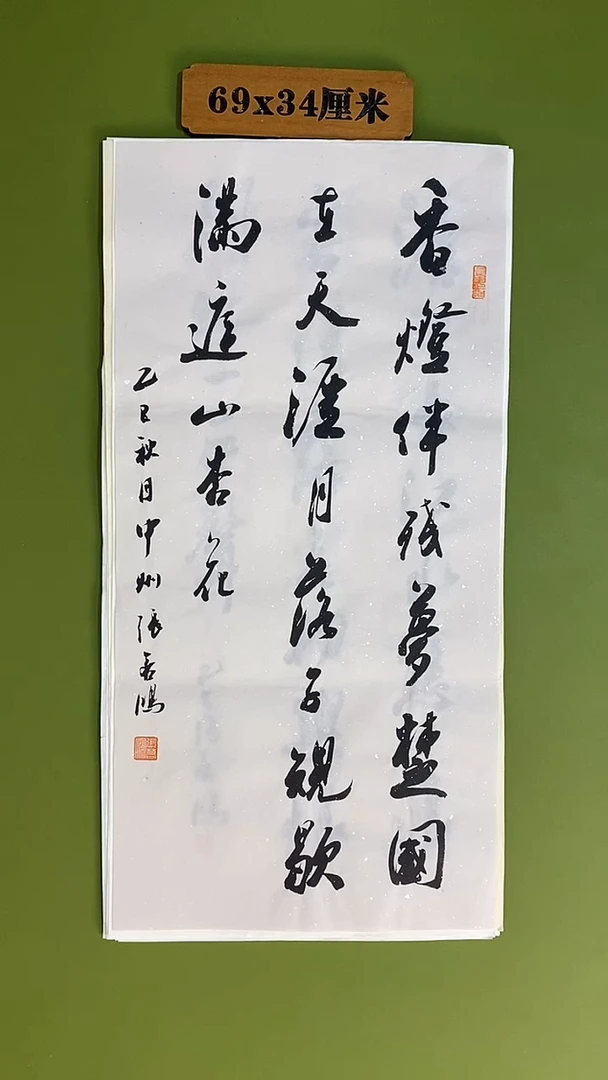 69x34厘米
香燈伴殘夢楚國
在天涯月落子規歇
滿庭山杏花
乙巳秋月中州張若鴻